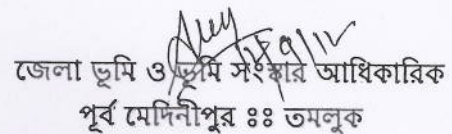 জেলা ভূমি ও ভূমি সংস্কার আধিকারিক
পূর্ব মেদিনীপুর ঃঃ তমলুক